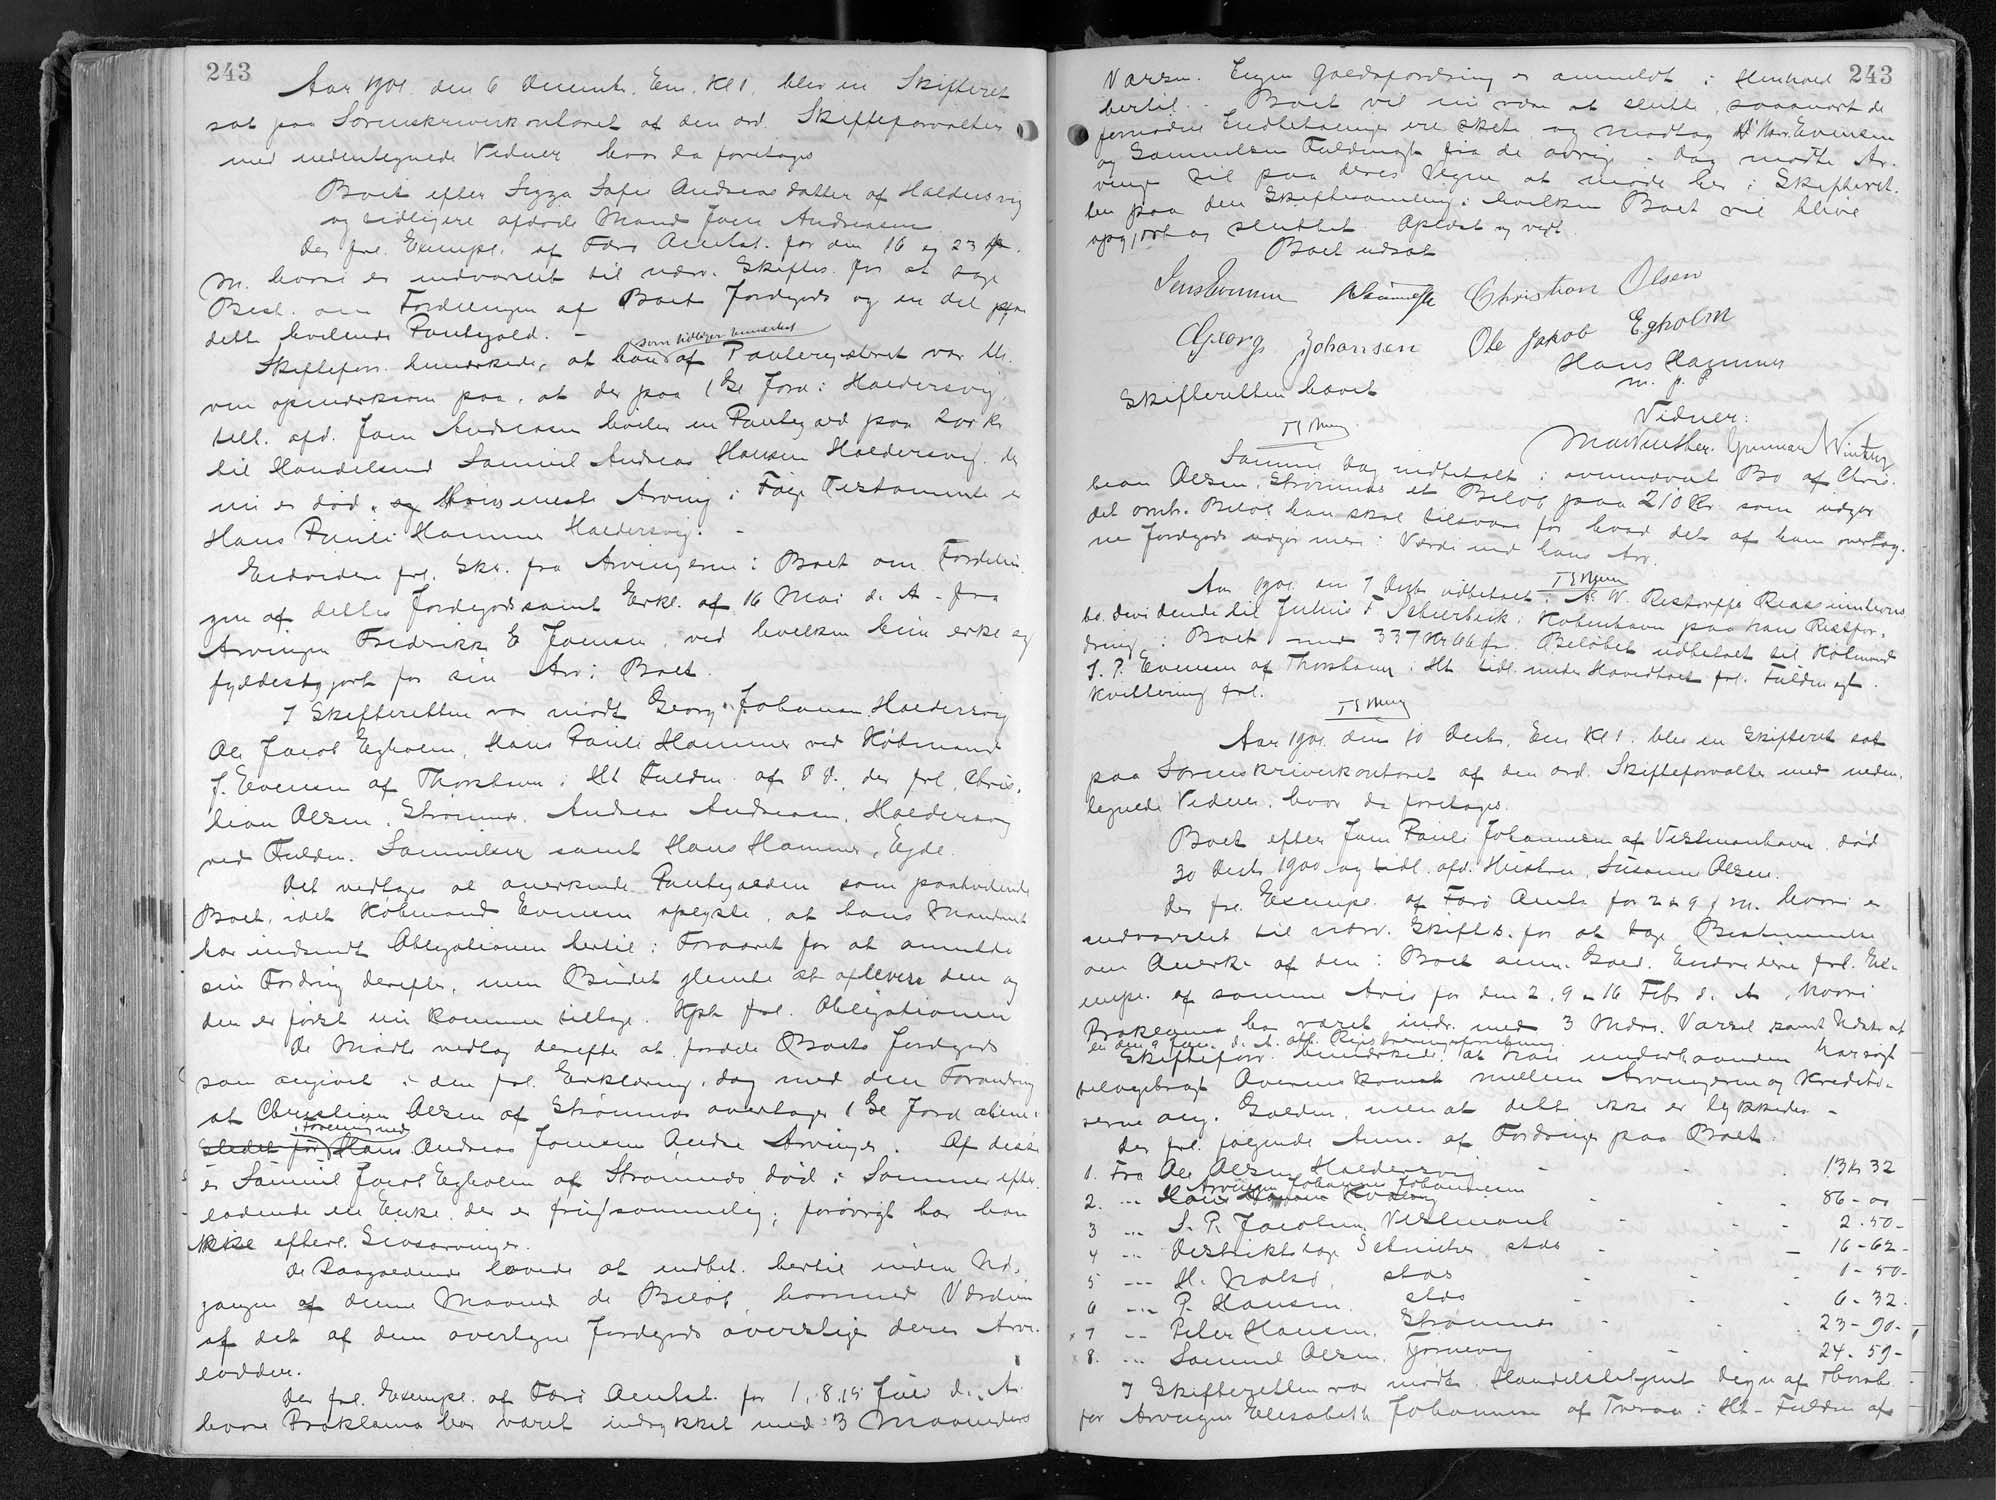 243
Aar 1901 den 6 Decemb. Em. Kl 1. blev en Skifteret
sat paa Sorenskriverkontoret af den ord. Skifteforvalter
med undertegnede Vidner hvor da foretages
Boet efter Sizza Sofie Andreasdatter af Haldersvig
og tidligere afdøde Mand Joen Andreasen
Der frl. Exempl. af Færø Amtst. for den 16 og 23 f.
M. hvori er indvarslet til nærv. Skiftes. for at tage
Best. om Fordelingen af Boets Jordegods og en del paa
dett hvilende Pantegæld. -
som tidligere bemærket
Skifteforv. bemærkede, at han af Panteregisteret var bl.
ven opmærksom paa, at der paa 1 Gl Jord i Haldersvig,
tilh. afd. Joen Andreasen hviler en Pantegæld paa 200 Kr
til Handelsmd Samuel Andreas Hansen Haldersvig. der
nu er død, og hvis eneste Arving i Følge Testamente er
Hans Pauli Hammer Haldersvig. -
Endvidere frl. Skr. fra Arvingerne i Boet om Fordelin
gen af dettes Jordegods samt Erkl. af 16 Mai d. A. fra
Arvingen Fredrikke E Joensen, ved hvilken hun erkl. sig
fyldestgjort for sin Arv i Boet.
I Skifteretten var mødt Georg Johansen Haldersvig
Ole Jacob Egholm, Hans Pauli Hammer ved Købmand
J. Evensen af Thorshavn i Ht. Fuldm. af d. d., der frl. Chris.
tian Olsen, Strømnæs, Andreas Andreasen, Haldersvig
ved Fuldm. Samuelsen samt Hans Hammer, Egde.
Det vedtages at anerkende Pantegælden som paahvilende
Boet, idet Købmand Evensen oplyste, at hans Mandant
har indsendt Obligationen hertil i Foraaret for at anmelde
sin Fordring derefter, men Budet glemte at aflevere den og
den er først nu kommen tilbage. Kph frl. Obligationen
De Mødte vedtog derefter at fordele Boets Jordegods
som angivet i den frl. Erklæring, dog med den Forandring
at Christian Olsen af Strømnæs overtager 1 Gl Jord alene i
i Forening med
stedet for Hans Andreas Joensens andre Arvinger. Af disse
er Samuel Jacob Egholm af Strømnæs død i Sommer efter.
ladende en Enke, der er frugtsommelig; forøvrigt har han
ikke efterl. Livsarvinger.
De Paagældende lovede at indbet. hertil inden Ud.
gangen af denne Maaned de Beløb, hvormed Værdien
af det af dem overtagne Jordegods overstiger deres Arve.
lodder.
Der frl. Exempl. af Færø Amtst. for 1, 8, 15 Juni d. A.
hvori Proklama har været indrykket med 3 Maaneders
243
Varsel. Ingen Gældsfordring er anmeldt i Henhold
hertil. - Boet vil nu være at slutte, saasnart de
fornødne Indbetalinger ere skete og modtog Kbm. Evensen
og Samuelsen Fuldmagt fra de øvrige - dag mødte Ar.
vinge til paa deres Vegne at møde her i Skifteret.
ten paa den Skiftesamling i hvilken Boet vil blive
opgjort og sluttet. Oplæst og vedt.
Boet udsat
Jens Evensen Christian Olsen
Georg Johansen Ole Jakob Egholm
Hans Hammer
m. f. P.
Skifteretten hævet
Vidner:
M. Winther. Gunnar Winther
Samme Dag indbetalt i ovennævnte Bo af Chris.
tian Olsen, Strømnæs et Beløb paa 210 Kr som udgør
det omh. Beløb han skal tilsvare for hvad det af ham overtag.
ne Jordegods udgør mere i Værdi end hans Arv.
Aar 1901 den 7 Decb. udbetalt i A. W. Restorffs Reassumtions
bo Dividende til Julius F Schierbeck i København paa hans Restfor.
dring i Boet med 337 Kr 66 Øre. Beløbet udbetalt til Købmand
J. P. Evensen af Thorshavn i Ht. tidl. under Hovedboet frl. Fuldmagt.
Kvittering frl.
Aar 1901 den 10 Decb. Em Kl 1. blev en Skifteret sat
paa Sorenskriverkontoret af den ord. Skifteforvalter med under.
tegnede Vidner, hvor da foretages.
Boet efter Joen Pauli Johannesen af Vestmanhavn, død
30 Decb. 1900 og tidl. afd. Hustru, Susanne Olsen.
Der frl. Exempl. af Færø Amts for 2 & 9 f. M. hvori er
indvarslet til nærv. Skifts. for at tage Bestemmelse
om Anerk. af den i Boet anm. Gæld. Endvidere frl. Ex.
empl. af samme Avis for den 2, 9 & 16 Feb. d. A., hvori
Proklama har været indr. med 3 Mdrs. Varsel samt Udskr. af
en den 9 Jan. d. A. afh. Registreringsforretning
Skifteforv. bemærkede, at han underhaanden har søgt
tilvejebragt Overenskomst mellem Arvingerne og Kredito.
rerne ang. Gælden, men at dett ikke er lykkedes -
Der frl. følgende Anm. af Fordringer paa Boet.
1. Fra Ole Olsen Haldersvig - - - 13 Kr 32
Arvingen Johannes Johannesen
2. --- 86 - 00
3 --- S. P. Jacobsen, Vestmanh - - - 2 - 50 -
4 --- Distriktslæge stds - - - 16 - 62 -
5 --- H. Nolsø, stds - - - 1 - 50 -
6 --- P. Hansen, stds - - - 6 - 32 -
× 7 --- Peter Hansen, Strømnæs - - - 23 - 90 -
× 8. --- Samuel Olsen, Tjørnevig - - - 24 - 59 -
I Skifteretten var mødt Handelsbetjent af Thorsh.
for Arvingen Elisabeth Johannesen af Tveraa i Ht. Fuldm af